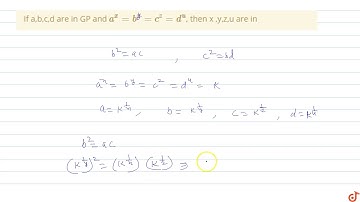 If a,b,c,d are in GP and aˣ = bʸ = cᶻ = dᵘ, then x ,y,z,u are in
b² = ac , c² = bd
aˣ = bʸ = cᶻ = dᵘ = K
a = K^(1/x) , b = K^(1/y) , c = K^(1/z) , d = K^(1/u)
b² = ac
(K^(1/y))² = (K^(1/x)) (K^(1/z)) ⇒